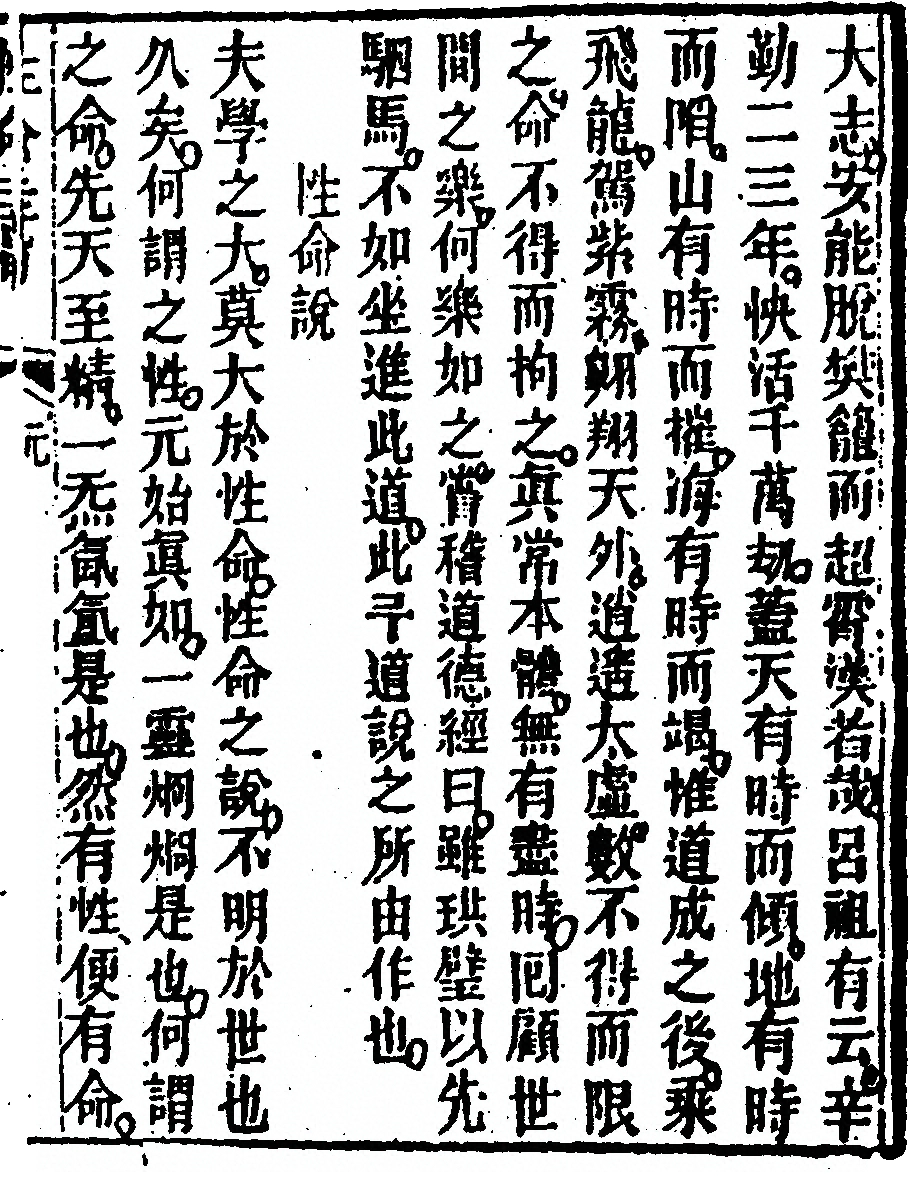 大志安能脫樊籠而超霄漢者哉呂祖有云辛
勤二三年快活千萬刼蓋天有時而傾地有時
而陷山有時而摧海有時而竭惟道成之後乘
飛龍駕紫霧翺翔天外逍遙太虛數不得而限
之命不得而拘之眞常本體無有盡時囘顧世
間之樂何樂如之嘗稽道德經曰雖珙璧以先
駟馬不如坐進此道此予道說之所由作也
性命說
夫學之大莫大於性命性命之說不明於世也
久矣何謂之性元始眞如一靈炯炯是也何謂
之命先天至精一炁氤氳是也然有性便有命
元